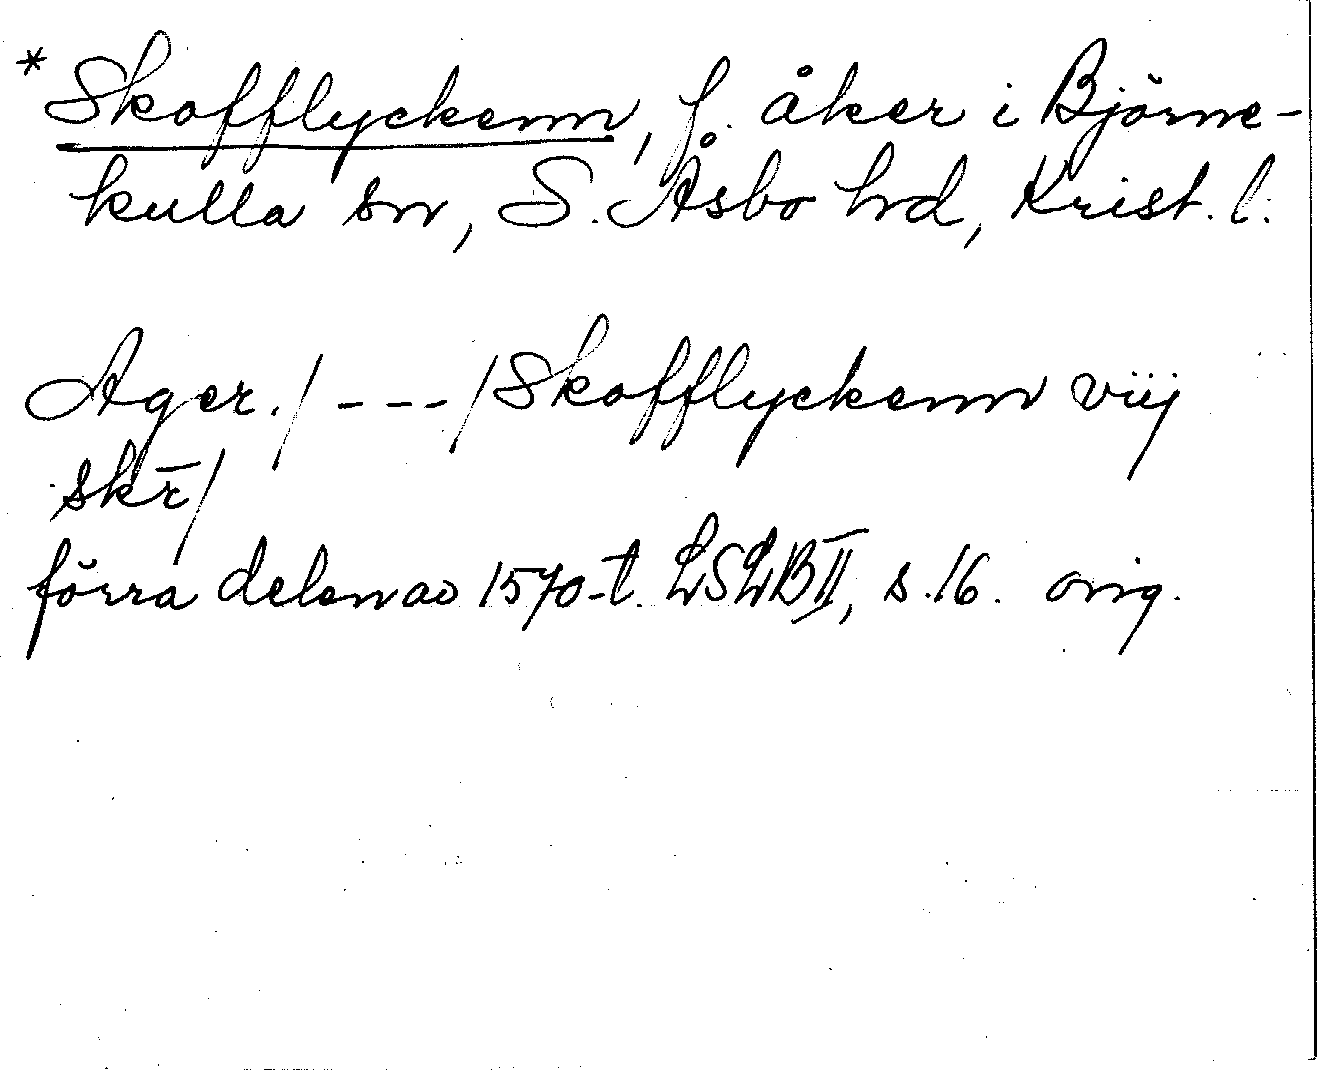 * Skofflyckenn, f. åker i Björne-
kulla sn, S. Åsbo hd, Krist. l.
Ager. / - - - / Skofflyckenn viij
skr̄ /
förra delen av 1570-t. LSLB II, s. 16. orig.